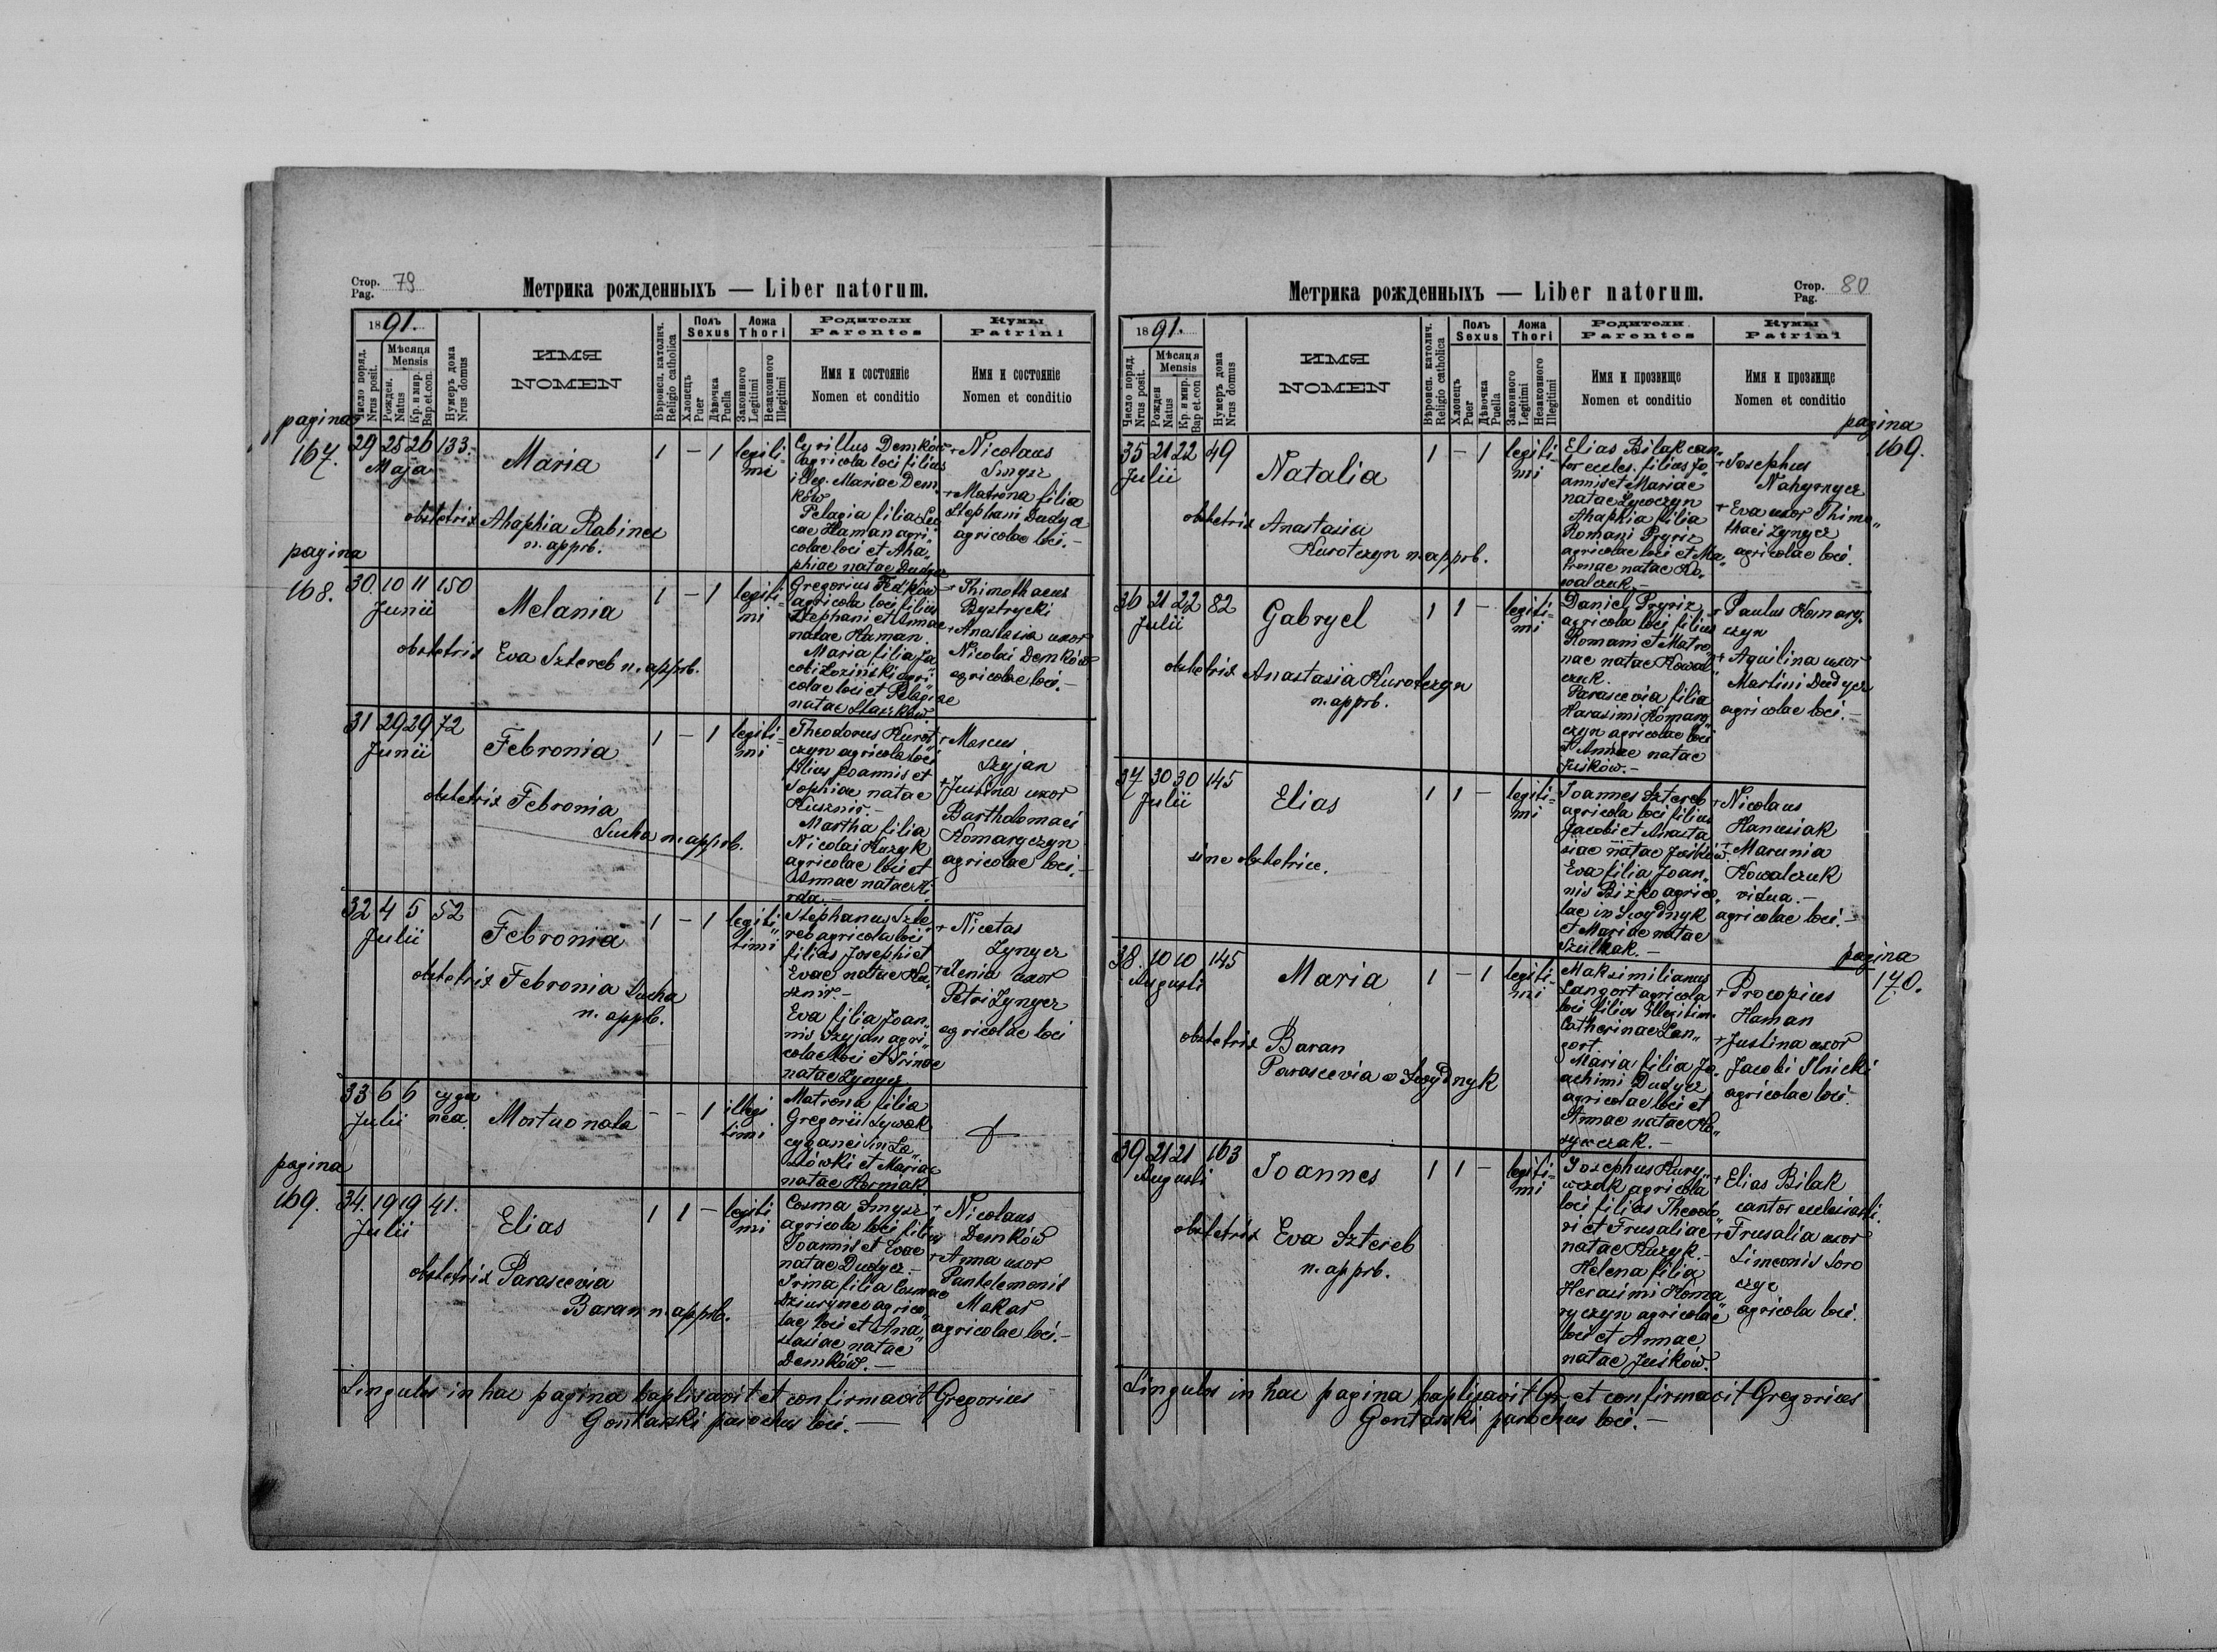 Стор. Pag. 79
Метрика рожденныхъ — Liber natorum.
1891.
Число поряд. Nrus posit.
Мѣсяця Mensis
Рожден. Natus
Кр. и мир. Bap.et.con.
Нумеръ дома Nrus domus
ИМЯ
NOMEN
Вѣроисп. католич. Religio catholica
Полъ Sexus
Хлопець Puer
Дѣвочка Puella
Ложа Thori
Законного Legitimi
Незаконного Illegitimi
Родители
Parentes
Имя и состоянiе
Nomen et conditio
Кумы
Patrini
Имя и состоянiе
Nomen et conditio
pagina
167.
29 25 26 133.
Maja
Maria
1 – 1 legiti-
mi
obstetrix Ahaphia Rabinec
n. apprb.
Cyrillus Demków
agricola loci filius
illeg. Mariae Dem-
ków
Pelagia filia Lu
cae Haman agri-
colae loci et Aha-
phiae natae Dudycz
+ Nicolaus
Smysz
+ Matrona filia
Stephani Dudycz
agricolae loci. –
pagina
168.
30. 10 11 150
Junii
Melania
1 – 1 legiti-
mi
obstetrix Eva Sztereb n. apprb.
Gregorius Fedków
agricola loci filius
Stephani et Annae
natae Haman.
Maria filia Ja
cobi Łoziński agri-
colae loci et Pelagiae
natae Stasików
+ Thimothaeus
Bystrycki
+ Anastasia uxor
Nicolai Demków
agricolae loci. –
31 29 29 72
Junii
Febronia
1 – 1 legiti-
mi
obstetrix Febronia
Sucha n. apprb.
Theodorus Kurot
czyn agricola loci
filius Joannis et
Sophiae natae
Kusznir. –
Martha filia
Nicolai Kuzyk
agricolae loci et
Annae natae Hi
rda. –
+ Marcus
Szyjan
+ Justina uxor
Bartholomaei
Komaryczyn
agricolae loci. –
32 4 5 52
Julii
Febronia
1 – 1 legiti-
timi
obstetrix Febronia Sucha
n. apprb.
Stephanus Szte
reb agricola loci
filius Josephi et
Evae natae Ku
sznir. –
Eva filia Joan-
nis Szyjan agri-
colae loci et Irinae
natae Zynycz
+ Nicetas
Zynycz
+ Xenia uxor
Petri Zynycz
agricolae loci
33 6 6 cyga
nea.
Julii
Mortuo nata
– – 1 illegi
timi
Matrona filia
Gregorii Sywak
cyganei in Ła-
szówki et Mariae
natae Horniak.
pagina
169.
34. 19 19 41.
Julii
Elias
1 1 – legiti
mi
obstetrix Parascevia
Baran n. apprb.
Cosma Smysz
agricola loci filius
Joannis et Evae
natae Dudycz. –
Irina filia Cosmae
Dziurynec agrico-
lae loci et Ana-
stasiae natae
Demków. –
+ Nicolaus
Demków
+ Anna uxor
Pantelemonis
Makar
agricolae loci. –
Singulos in hac pagina baptisavit et confirmavit Gregorius
Gontarski parochus loci. –
Стор. Pag. 80
Метрика рожденныхъ — Liber natorum.
1891.
Число поряд. Nrus posit.
Мѣсяця Mensis
Рожден Natus
Кр. и мир. Bap et.con
Нумеръ дома Nrus domus
ИМЯ
NOMEN
Вѣроисп. католич. Religio catholica
Полъ Sexus
Хлопець Puer
Дѣвочка Puella
Ложа Thori
Законного Legitimi
Незаконного Illegitimi
Родители
Parentes
Имя и прозвище
Nomen et conditio
Кумы
Patrini
Имя и прозвище
Nomen et conditio
pagina
169.
35 21 22 49
Julii
Natalia
1 – 1 legiti-
mi
obstetrix Anastasia
Kurotczyn n. apprb.
Elias Bilak can-
tor eccles. filius Jo
annis et Mariae
natae Sywczyn
Ahaphia filia
Romani Pryriz
agricolae loci et Ma-
tronae natae Ko-
walczuk. –
+ Josephus
Nahyrnycz
+ Eva uxor Thimo-
thaei Zynycz
agricolae loci.
36 21 22 82
Julii
Gabryel
1 1 – legiti-
mi
obstetrix Anastasia Kurotczyn
n. apprb.
Daniel Pryriz
agricola loci filius
Romani et Matro
nae natae Kowal
czuk.
Parascevia filia
Harasimi Komary
czyn agricolae loci
et Annae natae
Juśków. –
+ Paulus Komary-
czyn
+ Aquilina uxor
Martini Dudycz
agricolae loci. –
37 30 30 145
Julii
Elias
1 1 – legiti-
mi
sine obstetrice.
Joannes Sztereb
agricola loci filius
Jacobi et Anasta
siae natae Juśków.
Eva filia Joan-
nis Biżko agrico-
lae in Swydnyk
et Mariae natae
Szulhak. –
+ Nicolaus
Hanusiak
+ Marunia
Kowalczuk
vidua. –
agricolae loci. –
pagina
170.
38. 10 10 145
Augusti
Maria
1 – 1 legiti-
mi
obstetrix Baran
Parascevia e Swydnyk
Maksimilianus
Langort agricola
loci filius illegitim.
Catherinae Lan-
gort
Maria filia Jo-
achimi Dudycz
agricolae loci et
Annae natae Ko-
sywczak. –
+ Procopius
Haman
+ Justina uxor
Jacobi Ilnicki
agricolae loci.
39 21 21 163
Augusti
Joannes
1 1 – legiti-
mi
obstetrix Eva Sztereb
n. apprb.
Josephus Kury-
wczak agricola
loci filius Theodo
ri et Frusaliae
natae Kuzyk. –
Helena filia
Herasimi Koma
ryczyn agricolae
loci et Annae
natae Juśków.
+ Elias Bilak
cantor ecclesiasti.
+ Frusalia uxor
Simeonis Soro
czyc
agricola loci.
Singulos in hac pagina baptisavit Gr et confirmavit Gregorius
Gontarski parochus loci. –